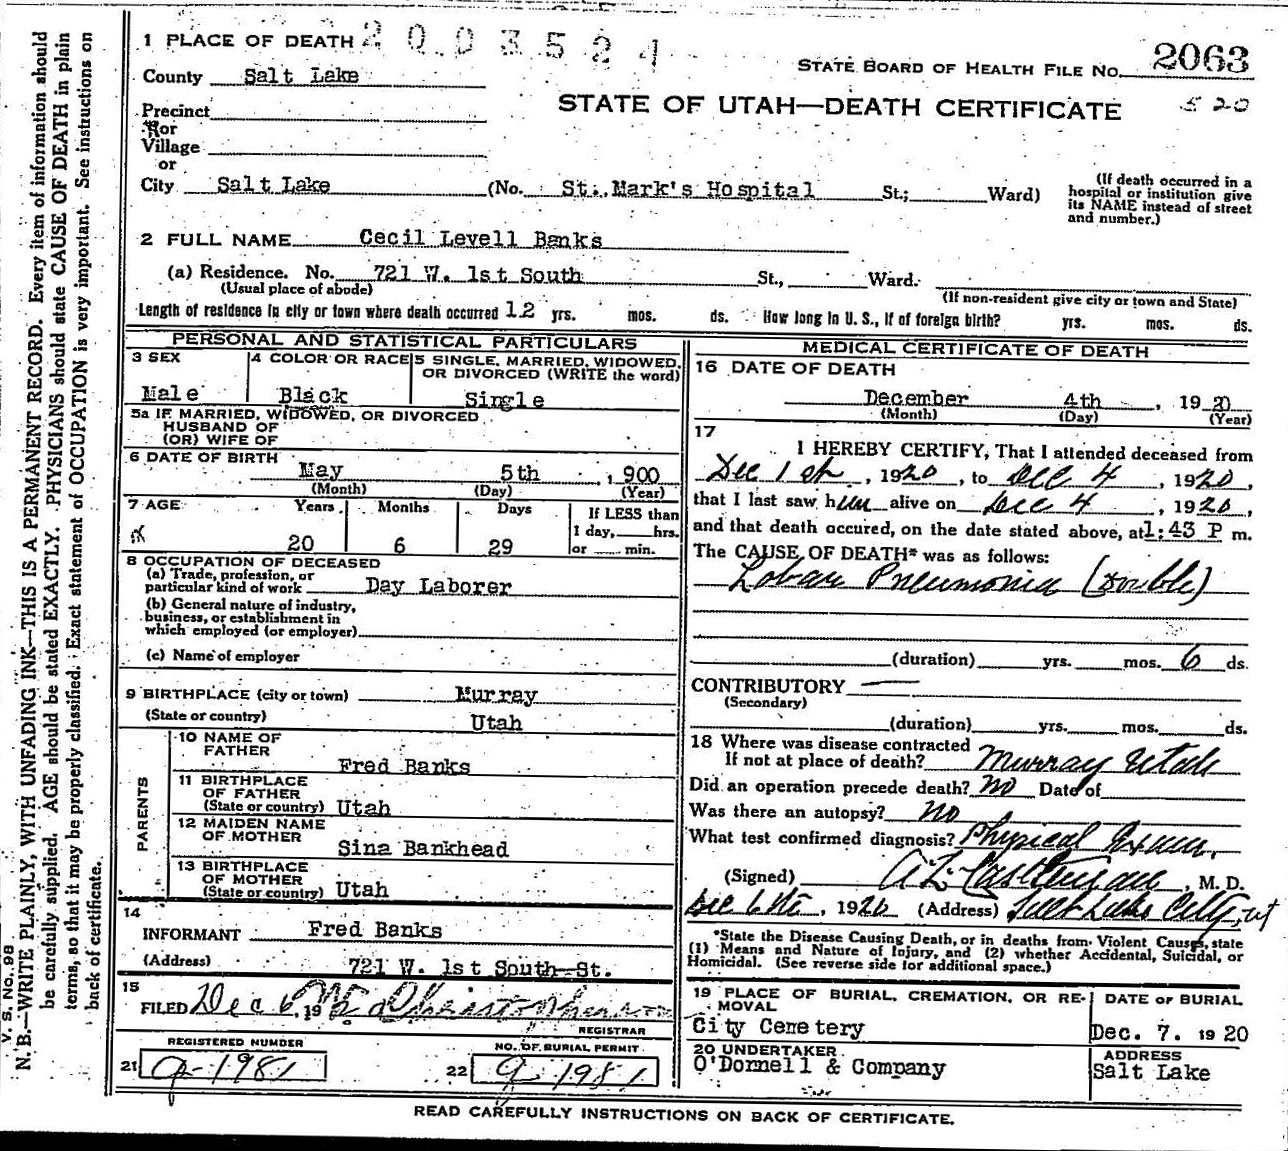 2003524
1 PLACE OF DEATH
STATE BOARD OF HEALTH FILE NO. 2063
County Salt Lake
STATE OF UTAH—DEATH CERTIFICATE 520
Precinct
or
Village
or
City Salt Lake (No. St. Mark's Hospital St.; Ward)
(If death occurred in a
hospital or institution give
its NAME instead of street
and number.)
2 FULL NAME Cecil Levell Banks
(a) Residence. No. 721 W. 1st South St., Ward.
(Usual place of abode) (If non-resident give city or town and State)
Length of residence in city or town where death occurred 12 yrs. mos. ds. How long in U. S., if of foreign birth? yrs. mos. ds.
PERSONAL AND STATISTICAL PARTICULARS
3 SEX
Male
4 COLOR OR RACE
Black
5 SINGLE, MARRIED, WIDOWED,
OR DIVORCED (WRITE the word)
Single
5a IF MARRIED, WIDOWED, OR DIVORCED
HUSBAND OF
(OR) WIFE OF
6 DATE OF BIRTH
May 5th , 900
(Month) (Day) (Year)
7 AGE Years Months Days If LESS than
1 day, hrs.
20 6 29 or min.
8 OCCUPATION OF DECEASED
(a) Trade, profession, or
particular kind of work Day Laborer
(b) General nature of industry,
business, or establishment in
which employed (or employer)
(c) Name of employer
9 BIRTHPLACE (city or town) Murray
(State or country) Utah
PARENTS
10 NAME OF
FATHER
Fred Banks
11 BIRTHPLACE
OF FATHER
(State or country) Utah
12 MAIDEN NAME
OF MOTHER
Sina Bankhead
13 BIRTHPLACE
OF MOTHER
(State or country) Utah
14
INFORMANT Fred Banks
(Address) 721 W. 1st South St.
15
FILED Dec 6, 19
REGISTRAR
REGISTERED NUMBER
21 9-1981
NO. OF BURIAL PERMIT
22 9 1981
MEDICAL CERTIFICATE OF DEATH
16 DATE OF DEATH
December 4th , 1920
(Month) (Day) (Year)
17
I HEREBY CERTIFY, That I attended deceased from
Dec 1st , 1920 , to Dec 4 , 1920 ,
that I last saw him alive on Dec 4 , 1920 ,
and that death occured, on the date stated above, at 1:43 P m.
The CAUSE OF DEATH* was as follows:
Lobar Pneumonia (Double)
(duration) yrs. mos. 6 ds.
CONTRIBUTORY —
(Secondary)
(duration) yrs. mos. ds.
18 Where was disease contracted
If not at place of death? Murray Utah
Did an operation precede death? No Date of
Was there an autopsy? No
What test confirmed diagnosis? Physical Exam.
(Signed) A L Castleman , M. D.
Dec 6th , 1920 (Address) Salt Lake City, Ut
*State the Disease Causing Death, or in deaths from Violent Causes, state
(1) Means and Nature of Injury, and (2) whether Accidental, Suicidal, or
Homicidal. (See reverse side for additional space.)
19 PLACE OF BURIAL, CREMATION, OR RE-
MOVAL
City Cemetery
DATE OF BURIAL
Dec. 7. 1920
20 UNDERTAKER
O'Donnell & Company
ADDRESS
Salt Lake
READ CAREFULLY INSTRUCTIONS ON BACK OF CERTIFICATE.
V. S. No. 98
N. B.—WRITE PLAINLY, WITH UNFADING INK—THIS IS A PERMANENT RECORD. Every item of information should
be carefully supplied. AGE should be stated EXACTLY. PHYSICIANS should state CAUSE OF DEATH in plain
terms, so that it may be properly classified. Exact statement of OCCUPATION is very important. See instructions on
back of certificate.